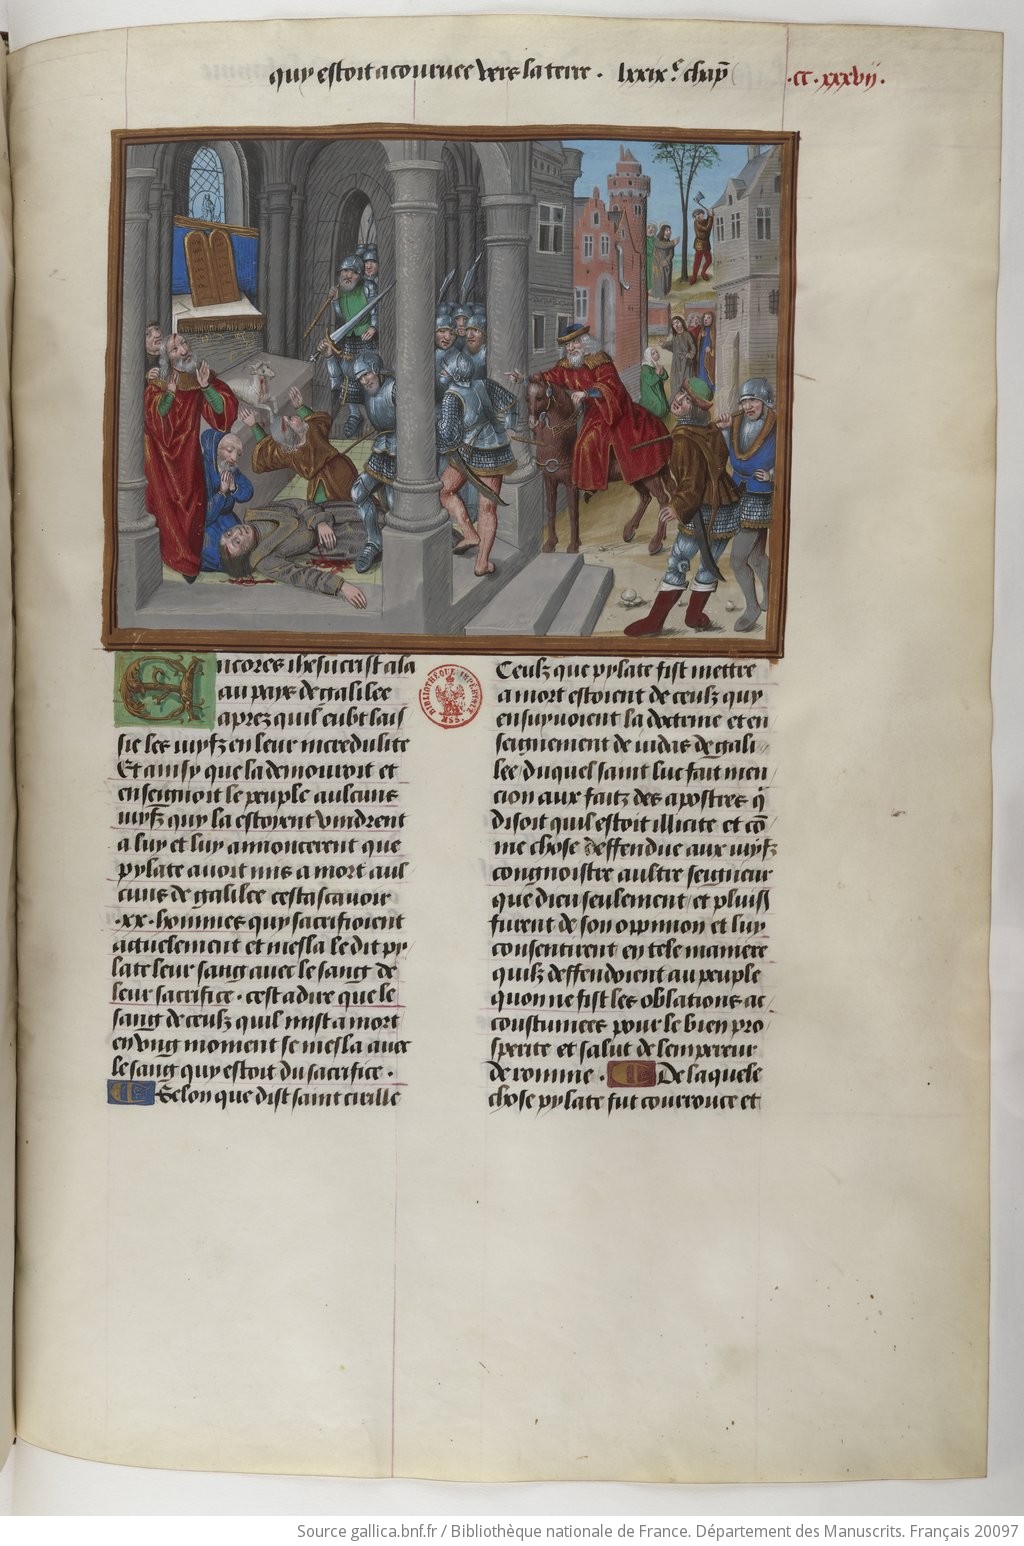 quy estoit acouruee vers la terre . lxxixe chap̄
.CC. xxxvij.
Encores ihesucrist ala
au pays de galilee
aprez quil eubt lais
sie les iuyfz en leur incredulite
Et ainsy que la demouroit et
enseignoit le peuple aulcuns
iuyfz quy la estoyent vindrent
a luy et luy annoncerent que
pylate auoit mis a mort aul
cuns de galilee cestascauoir
.xx. hommes quy sacrifioient
actuelement et mesla le dit py
late leur sang auec le sang de
leur sacrifice . cest a dire que le
sang de ceulz quil mist a mort
en vng moment se mesla auec
le sang quy estoit du sacrifice .
Selon que dist saint cirille
Ceulz que pylate fist mettre
a mort estoient de ceulz quy
ensuyuoient la doctrine et en
seignement de iudas de gali
lee / duquel saint luc fait men
cion aux faitz des apostres q̄
disoit quil estoit illicite et cō
me chose deffendue aux iuyfz
congnoistre aultre seigneur
que dieu seulement / et pluiss
furent de son oppinion et luy
consentirent en tele maniere
quilz deffendoient au peuple
quon ne fist les oblations ac
coustumees pour le bien pro
sperite et salut de lempereur
de romme . De laquele
chose pylate fut courrouce et
BIBLIOTHÈQUE IMPÉRIALE
MSS.
Source gallica.bnf.fr / Bibliothèque nationale de France. Département des Manuscrits. Français 20097